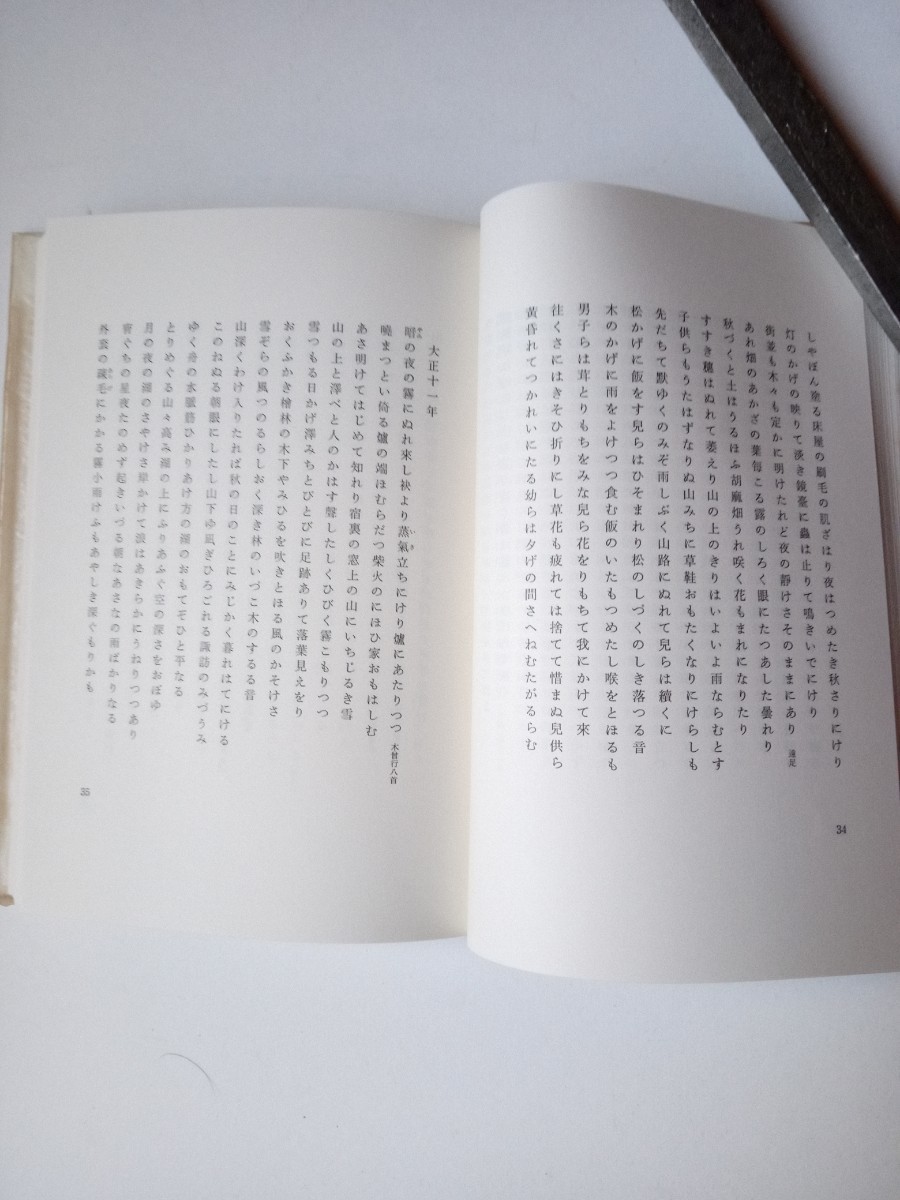 しやぼん塗る床屋の刷毛の肌ざはり夜はつめたき秋さりにけり
灯のかげの映りて淡き鏡臺に蟲は止りて鳴きいでにけり
街並も木々も定かに明けたれど夜の靜けさそのままにあり 遠足
あれ畑のあかざの葉毎こる露のしろく眼にたつあした曇れり
秋づくと土はうるほふ胡麻畑うれ咲く花もまれになりたり
すすき穗はぬれて萎えり山の上のきりはいよいよ雨ならむとす
子供らもうたはずなりぬ山みちに草鞋おもたくなりにけらしも
先だちて默ゆくのみぞ雨しぶく山路にぬれて兒らは續くに
松かげに飯をす兒らはひそまれり松のしづくのしき落つる音
木のかげに雨をよけつつ食む飯のいたもつめたし喉をとほるも
男子らは茸とりもちをみな兒ら花をりもちて我にかけて來
往くさにはきそひ折りにし草花も疲れては捨てて惜まぬ兒供ら
黄昏れてつかれいにたる幼らは夕げの間さへねむたがるらむ
34
大正十一年
暗の夜の霧にぬれ來し袂より蒸氣立ちにけり爐にあたりつつ 木曾行八首
曉まつとい倚る爐の端ほむらだつ柴火のにほひ家おもはしむ
あさ明けてはじめて知れり宿裏の窓上の山にいちじるき雪
山の上と澤べと人のかはす聲したしくひびく霧こもりつつ
雪つもる日かげ澤みちとびとびに足跡ありて落葉見えをり
おくふかき檜林の木下やみひるを吹きとほる風のかそけさ
雪ぞらの風つのるらしおく深き林のいづこ木のするる音
山深くわけ入りたれば秋の日のことにみじかく暮れはてにける
このねぬる朝眼にしたし山下ゆ凪ぎひろごれる諏訪のみづうみ
ゆく舟の水脈筋ひかりあけ方の湖のおもてぞひと平なる
とりめぐる山々高み湖の上にふりあふぐ空の深さをおぼゆ
月の夜の湖のさやけさ岸かけて浪はあきらかにうねりつつあり
宵ぐちの星夜たのめず起きいづる朝なあさなの雨ばかりなる
外套の毛にかかる霧小雨けふもあやしき深ぐもりかも
35